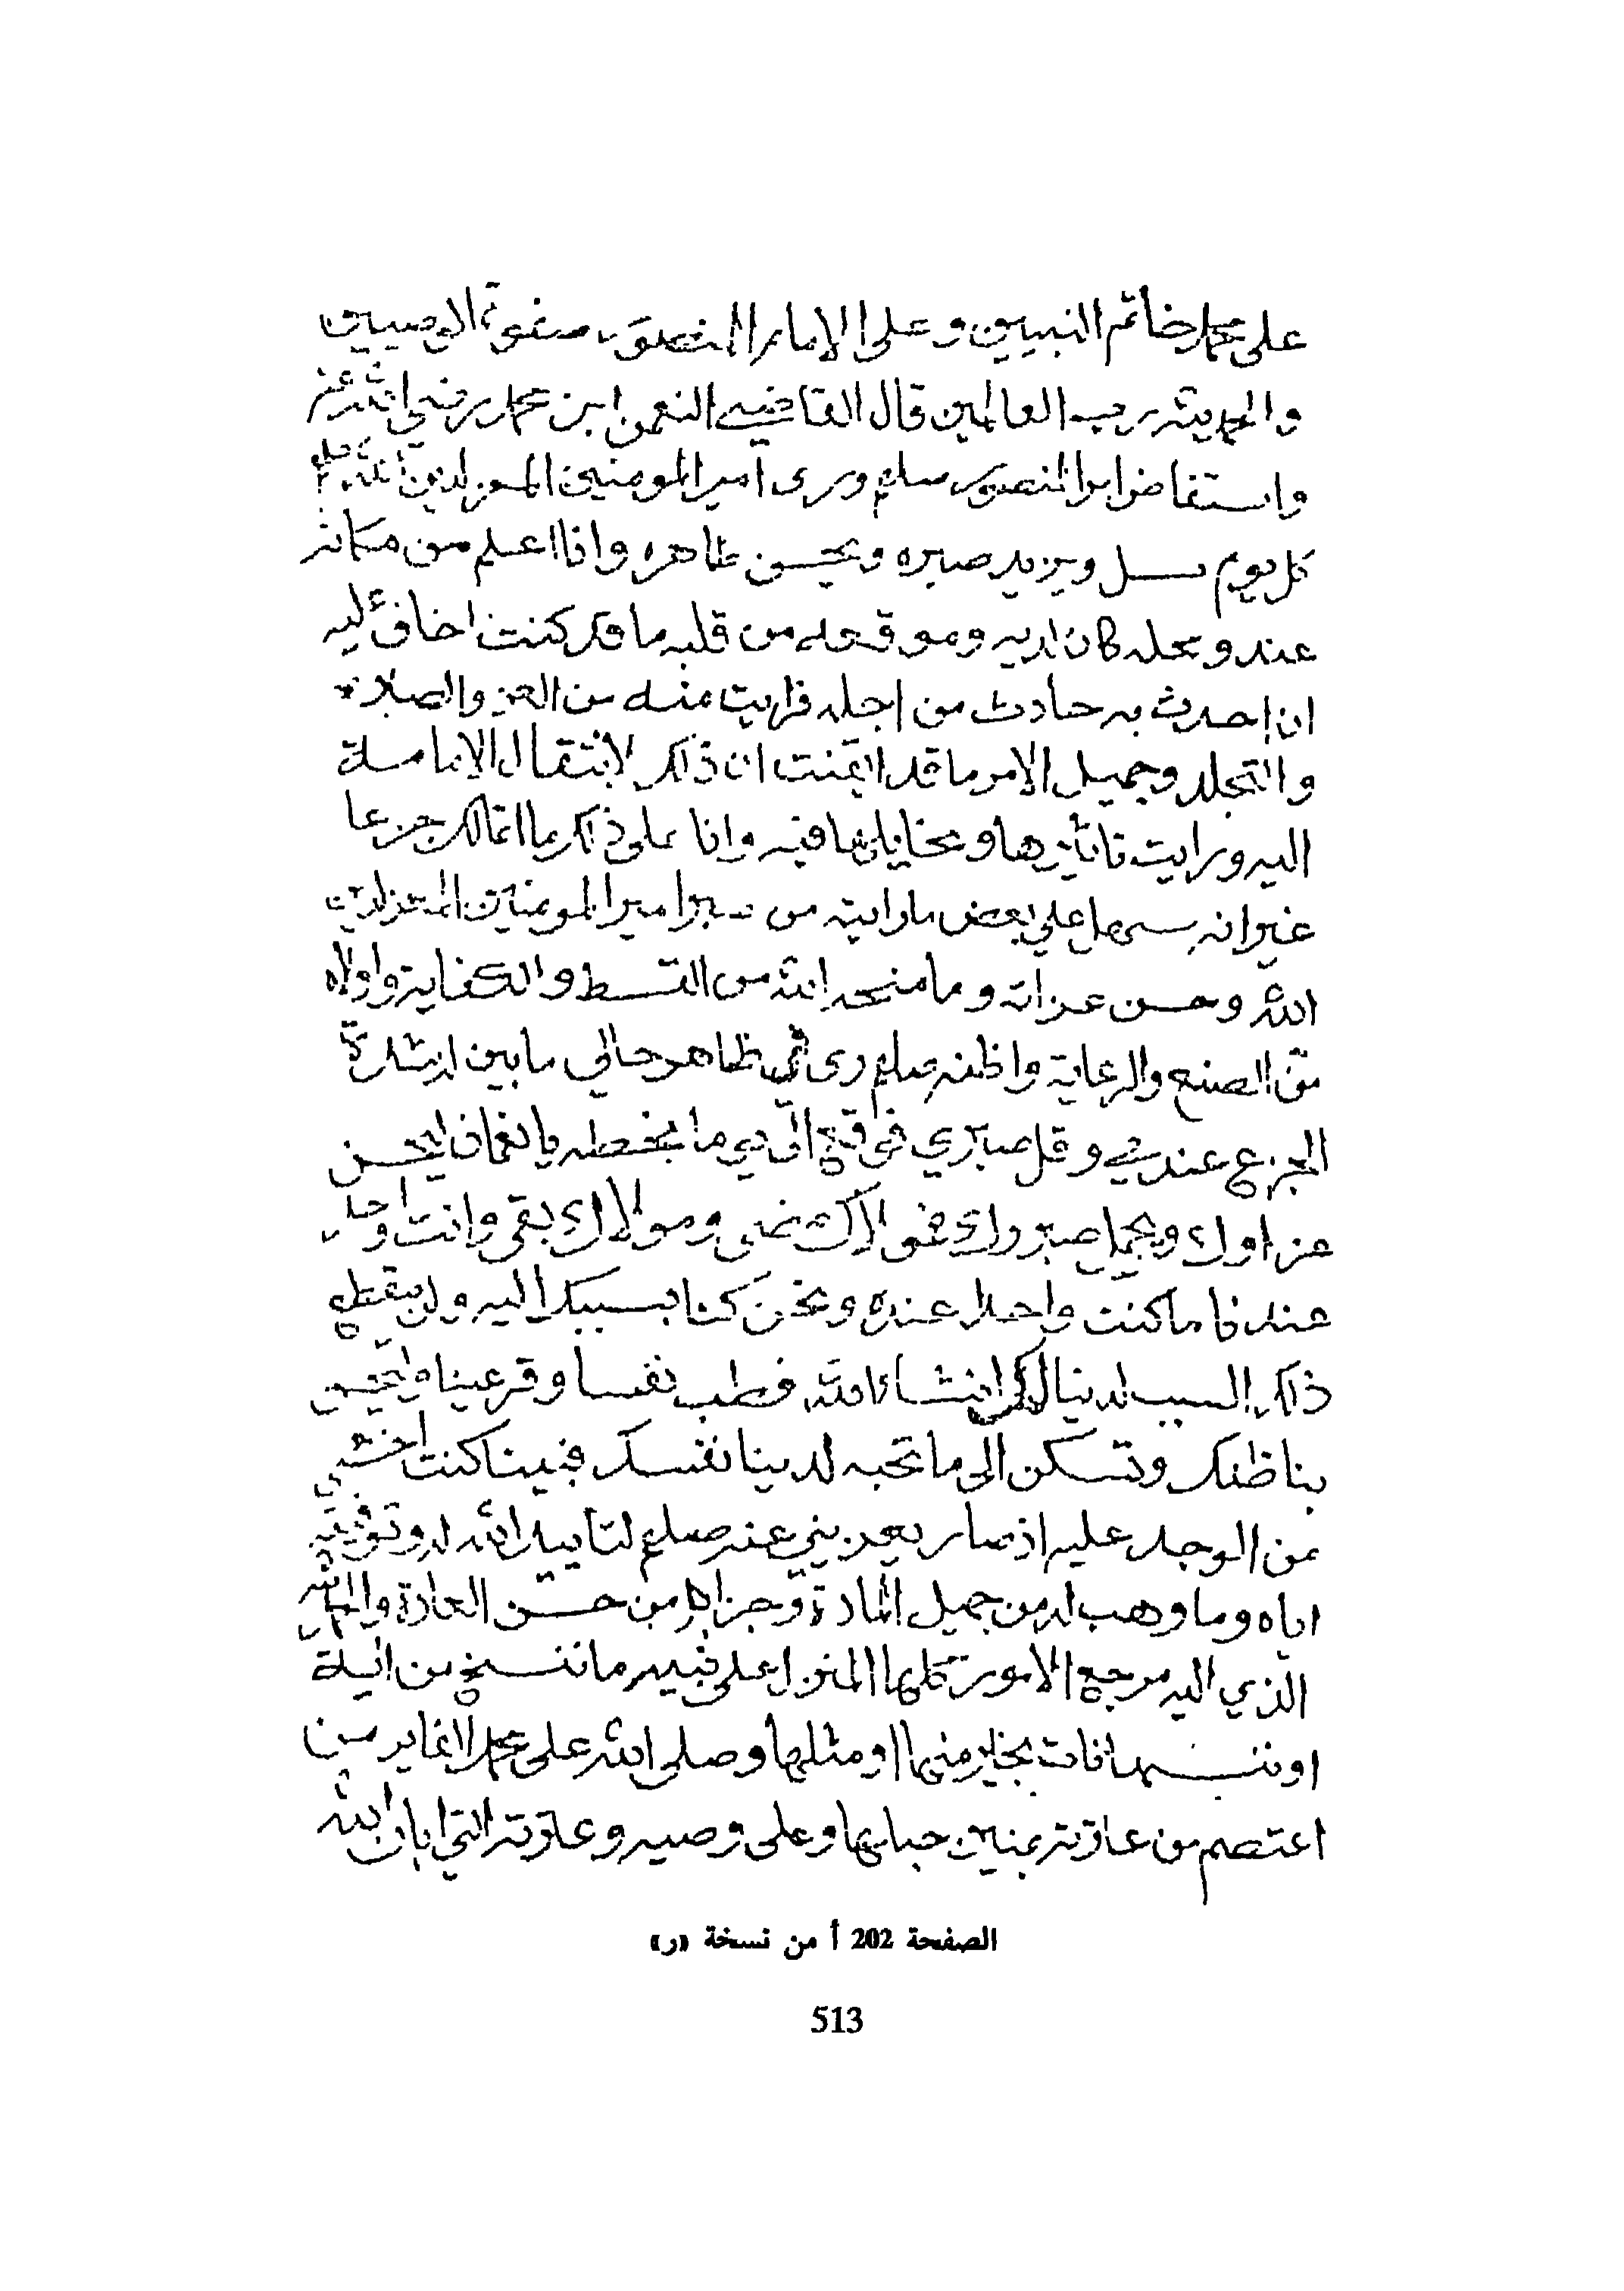 على محمد خاتم النبيين وعلى الامام المنصور صفوة الوصيين
والحمد لله رب العالمين قال القاضي النعمن ابن محمد رضي الله عنه
واستفاض امر المنصور صلع وراى امير المومنين المعز لدين الله صلع
كل يوم ويزيد صبره ويحسن ظاهره وانا اعلم من مكانه
عنده ومحله كان لديه وموقعه من قلبه ما قد كنت اخاف عليه
ان احدث به حادث من اجله فرايت منه من العز والصلابة
والتجلد وجميل الامر ما قد ايقنت ان ذلك لانتقال الامامة
اليه ورايت تاثيرها ومخايلها فيه وانا على ذلك ما اتمالك جزعا
غير انه سهل علي بعض ما رايته من صبر امير المومنين المعز لدين
الله وحسن عزائه وما منحه الله من القسط والكفاية واولاه
من الصنع والرعاية واظنه صلع راى في ظاهر حالي ما بين له شدة
الجزع عندي وقل صبري فوقع الي يوما بخطه يا نعمان ليحسن
عزاوك ويجمل صبرك فمولاك مضى ومولاك بقي وانت واحد
عندنا ما كنت واحدا عنده ونحن كنا بسببك اليه ولن ينقطع
ذلك السبب لدينا لك انشاء الله فطب نفسا وقر عينا وليحسن
بنا ظنك وتسكن الى ما تحبه لدينا نفسك فبينا كنت اخشى
من الوجد عليه اذ صار يعزيني عنه صلع لتاييد الله له وتوفيقه
اياه وما وهب له من جميل المادة وجزاه من حسن العادة والحمد لله
الذي اليه مرجع الامور كلها المنزل على نبيه ما ننسخ من اية
او ننسها نات بخير منها او مثلها وصلى الله على محمد من
اعتصم من عترته بمتين حبلها وعلى وصيه وعترته التي ابان الله
الصفحة 202 أ من نسخة «ر»
513